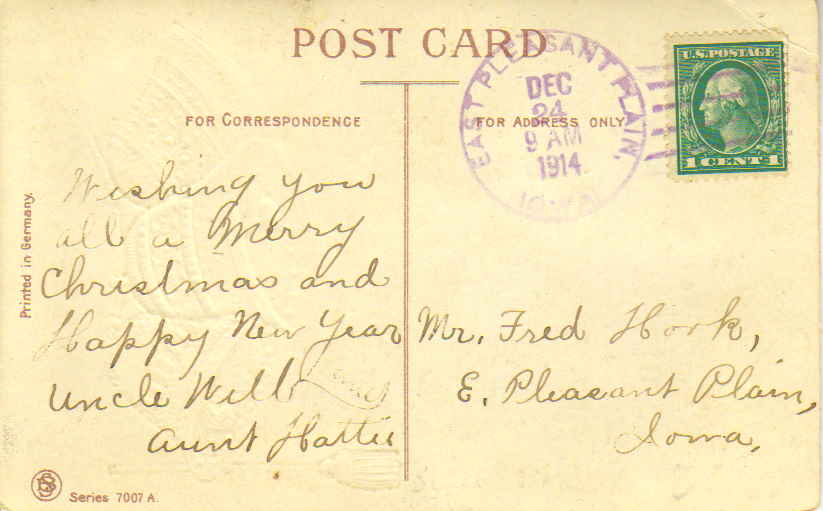 POST CARD
FOR CORRESPONDENCE
FOR ADDRESS ONLY
EAST PLEASANT PLAIN,
IOWA
DEC
24
9 AM
1914
U.S. POSTAGE
1 CENT 1
Printed in Germany.
Wishing you
all a Merry
Christmas and
Happy New Year
Uncle Will
and
Aunt Hattie
Mr. Fred Hork,
E. Pleasant Plain,
Iowa,
Series 7007 A.